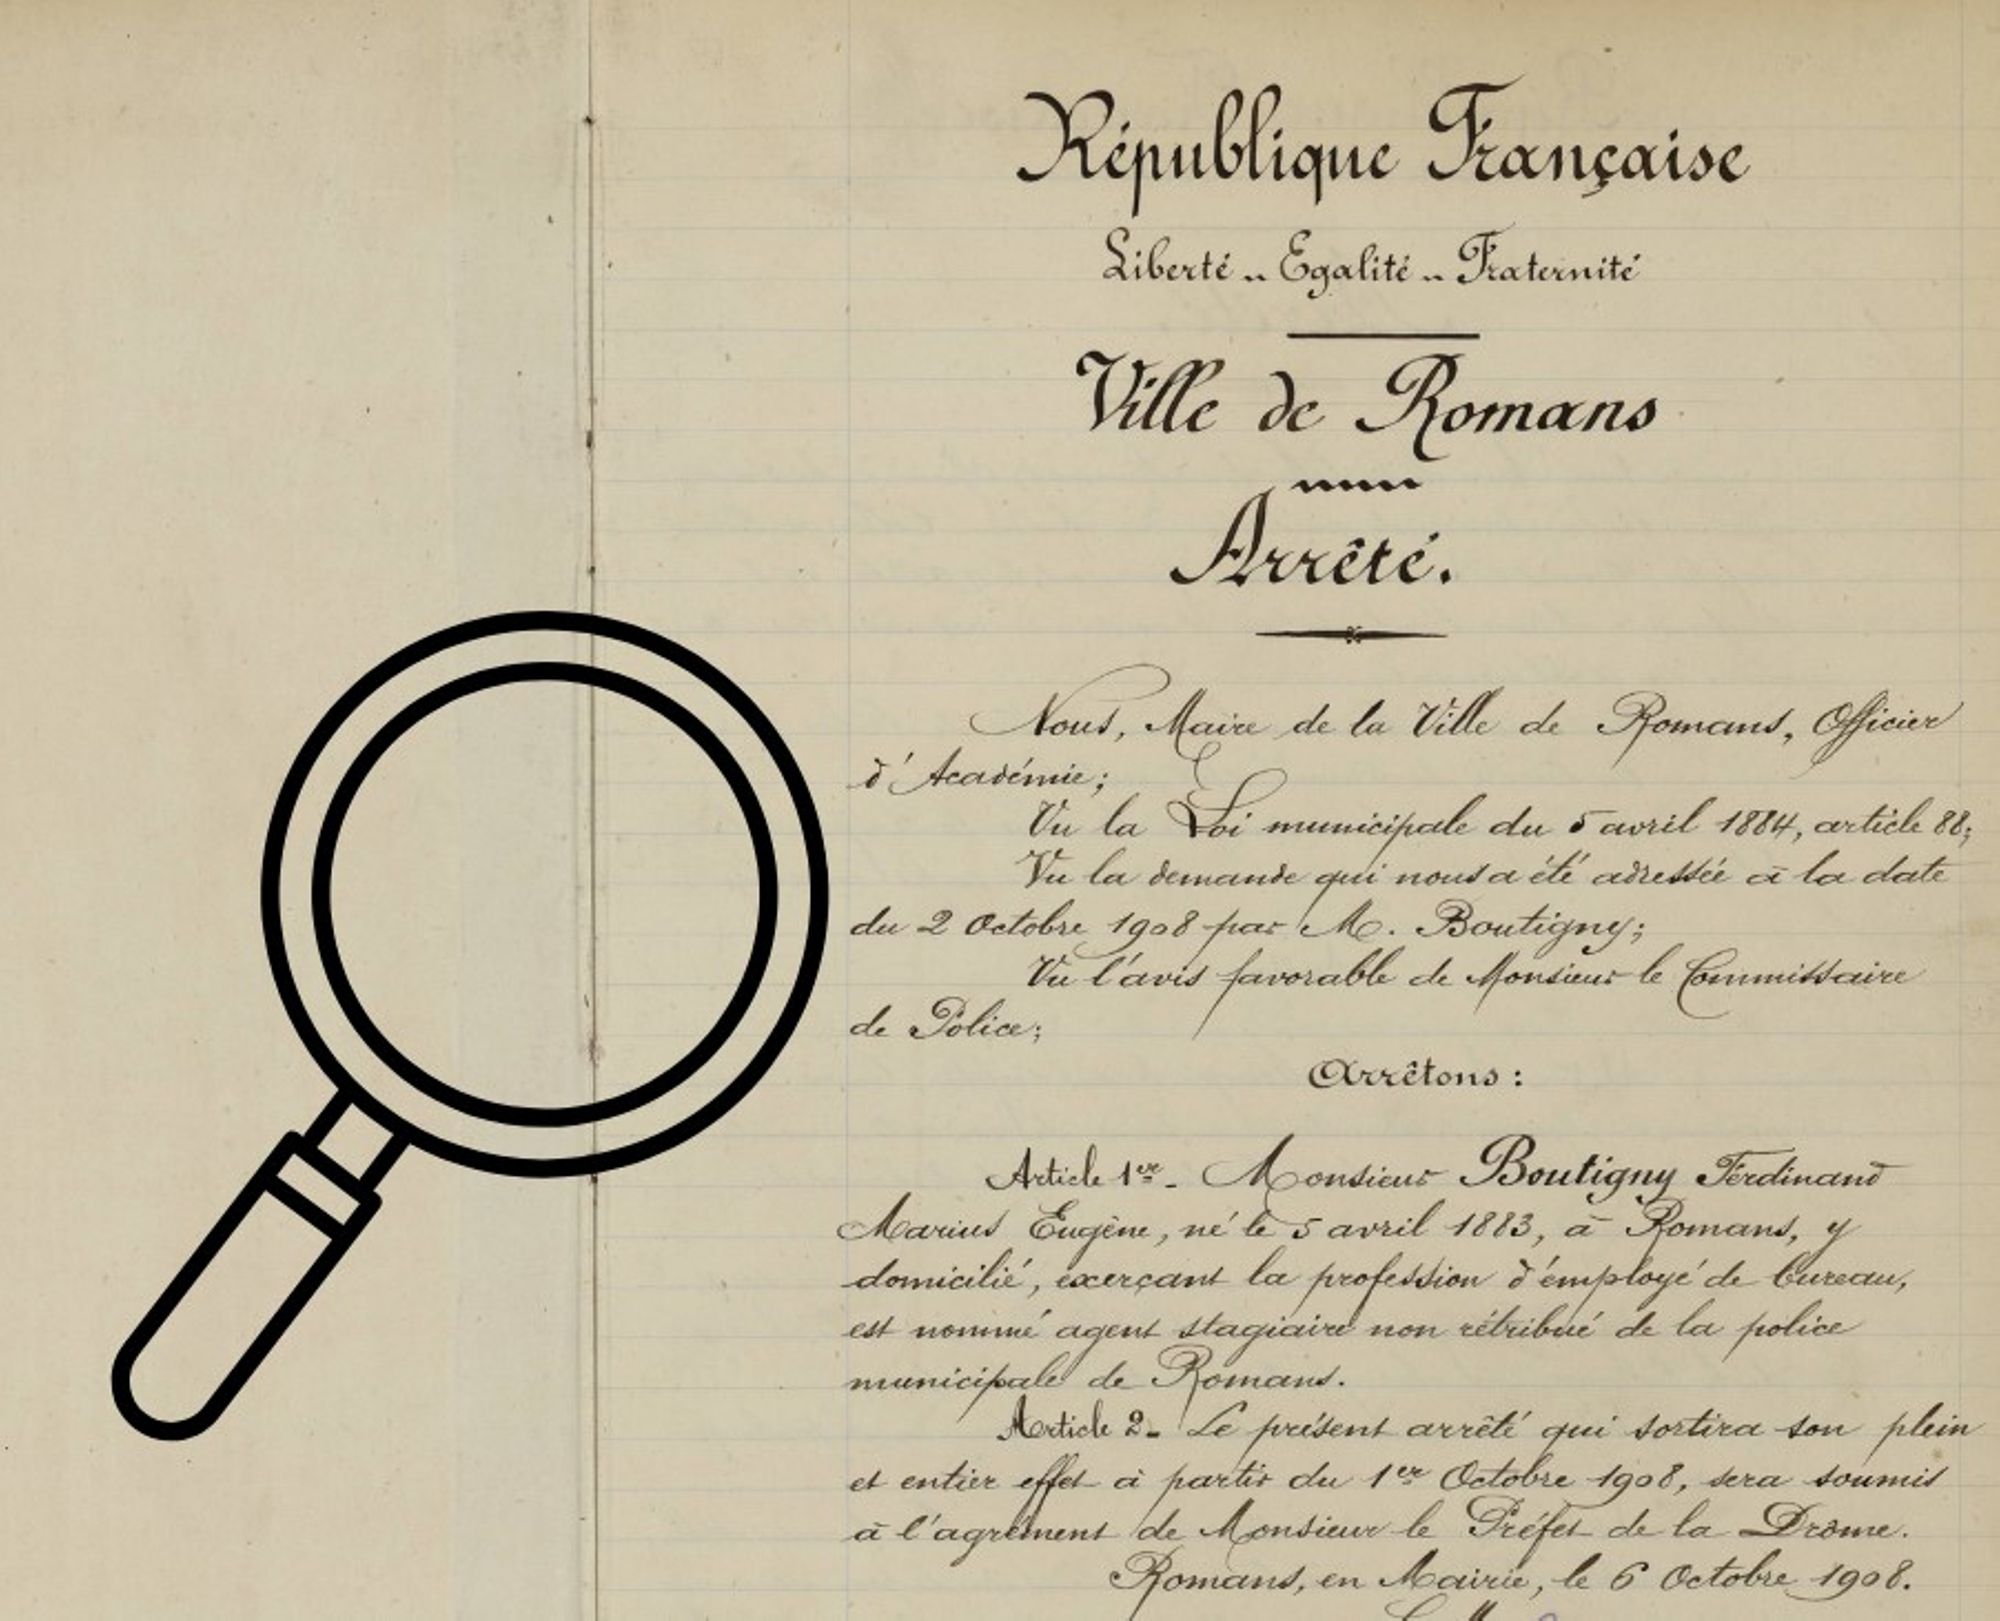 République Française
Liberté - Egalité - Fraternité
Ville de Romans
Arrêté.
Nous, Maire de la Ville de Romans, Officier
d'Académie;
Vu la Loi municipale du 5 avril 1884, article 88;
Vu la demande qui nous a été adressée à la date
du 2 Octobre 1908 par M. Boutigny;
Vu l'avis favorable de Monsieur le Commissaire
de Police;
Arrêtons :
Article 1er - Monsieur Boutigny Ferdinand
Marius Eugène, né le 5 avril 1883, à Romans, y
domicilié, exerçant la profession d'employé de bureau,
est nommé agent stagiaire non rétribué de la police
municipale de Romans.
Article 2 - Le présent arrêté qui sortira son plein
et entier effet à partir du 1er Octobre 1908, sera soumis
à l'agrément de Monsieur le Préfet de la Drôme.
Romans, en Mairie, le 6 Octobre 1908.